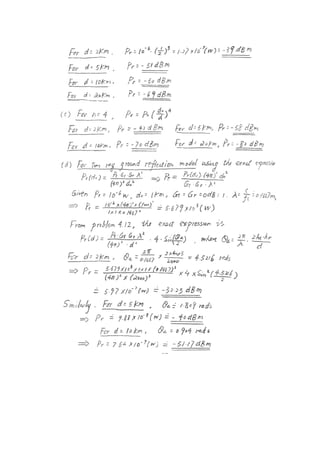 For d = 2Km. Pr = 10^-6 · (1/2)^3 = 1.27 x 10^-7 (W) = -39 dBm
For d = 5Km, Pr = -51 dBm
For d = 10Km, Pr = -60 dBm
For d = 20Km, Pr = -69 dBm
(c) For n=4, Pr = P0 (d0/d)^4
For d = 2Km, Pr = -42 dBm For d = 5Km, Pr = -58 dBm
For d = 10Km, Pr = -70 dBm For d = 20Km, Pr = -82 dBm
(d) For Two ray ground reflection model using the exact expression
Pr(d0) = Pt Gt Gr λ² / (4π)² d0² => Pt = Pr(d0) (4π)² d0² / Gt · Gr · λ²
Given Pr = 10^-6 W, d0 = 1Km, Gt = Gr = 0dB = 1, λ = c/f = 0.167m,
=> Pt = 10^-6 x (4π)² x (1000)² / 1 x 1 x 0.167² = 5.679 x 10³ (W)
From problem 4.12, the exact expression is
Pr(d) = Pt Gt Gr λ² / (4π)² · d² · 4 · Sin²(θΔ/2), where θΔ = 2π/λ · 2ht hr / d
For d = 2Km, θΔ = 2π/0.167 x 2x40x3/2000 = 4.5216 rads
=> Pr = 5.679 x 10³ x 1 x 1 x (0.167)² / (4π)² x (2000)² x 4 x Sin² (4.5216/2)
= 5.97 x 10^-7 (W) = -32.25 dBm
Similarly, For d = 5Km, θΔ = 1.809 rads
=> Pr = 9.88 x 10^-8 (W) = -40 dBm
For d = 10Km, θΔ = 0.904 rads
=> Pr = 7.64 x 10^-9 (W) = -51.17 dBm